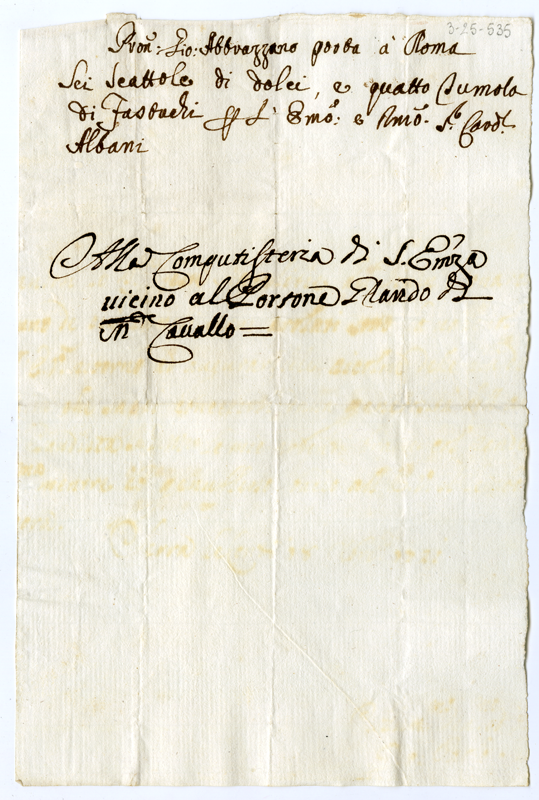 3-25-535
Pron: Gio: Abbruzzano porta à Roma
Sei Scattole di dolci, e quatto Cumola
di Fastuchi P L' Emo: e Rmo: S.r Card.l
Albani
Alla Computisteria di S. Emza
vicino al Porsone
Cavallo =